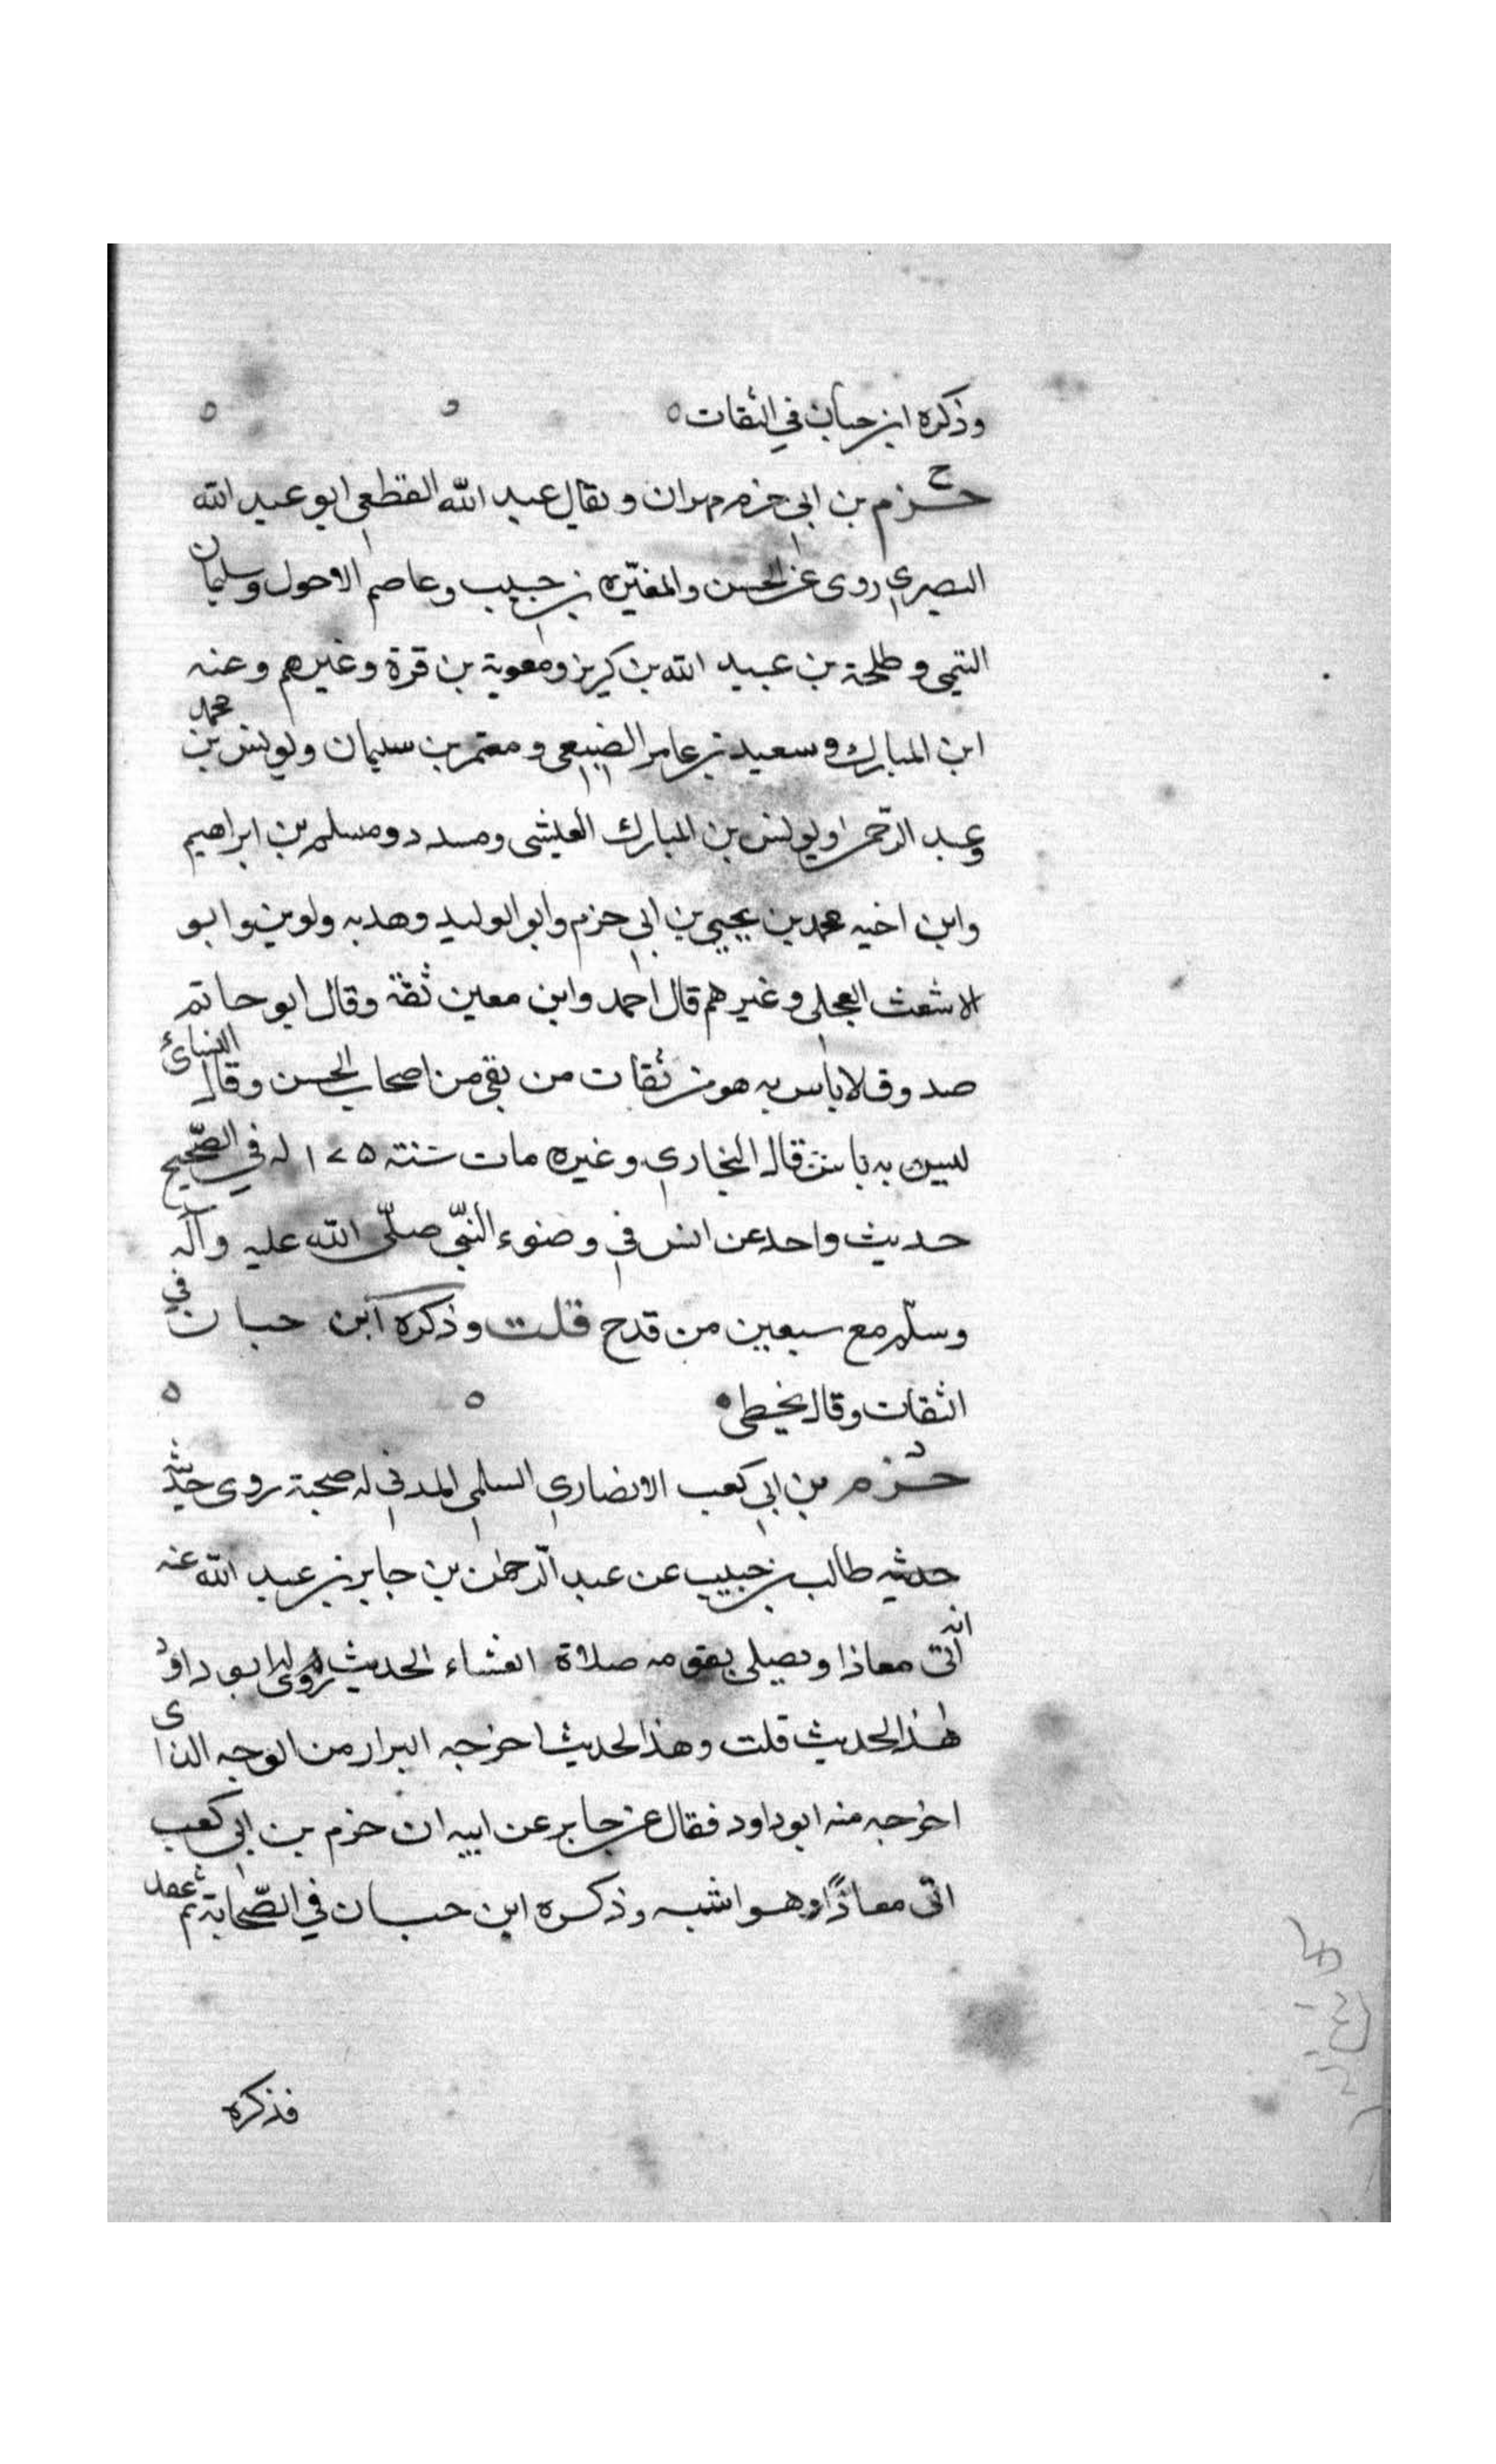 وذكره ابن حبان في الثقات ه ه ه
خ
حزم بن ابي حزم مهران ويقال عبد الله القطعي ابو عبد الله
البصري روى عن الحسن والمغيره بن حبيب وعاصم الاحول وسليمان
التيمي وطلحة بن عبيد الله بن كريز ومعوية بن قرة وغيرهم وعنه
ابن المبارك وسعيد بن عامر الضبعي ومعتمر بن سليمان ويونس بن محمد
وعبد الرحمن ويونس بن المبارك العيشى ومسدد ومسلم بن ابراهيم
وابن اخيه محمد بن يحيى بن ابي حزم وابو الوليد وهدبه ولوين وابو
الاشعث العجلي وغيرهم قال احمد وابن معين ثقة وقال ابو حاتم
صدوق لا باس به هو من ثقات من بقي من اصحاب الحسن وقال النسائي
ليس به باس قال البخاري وغيره مات سنة ١٧٥ له في الصّحيح
حديث واحد عن انس في وضوء النبّي صلّى الله عليه وآله
وسلّم مع سبعين من قدح قلت وذكره ابن حبان في
الثقات وقال يخطى ه ه
د
حزم بن ابي كعب الانصاري السلمي المدني له صحبة روى حديثه
حديثه طالب بن حبيب عن عبد الرحمٰن بن جابر بن عبد الله عنه
انه اتى معاذا ويصلي بقومه صلاة العشاء الحديث روى له ابو داود
هٰذا الحديث قلت وهذا الحديث اخرجه البزار من الوجه الذى
اخرجه منه ابو داود فقال عن جابر عن ابيه ان حزم بن ابي كعب
اتى معاذًا وهو اشبه وذكره ابن حبان في الصّحابة ثم غفل
فذكره